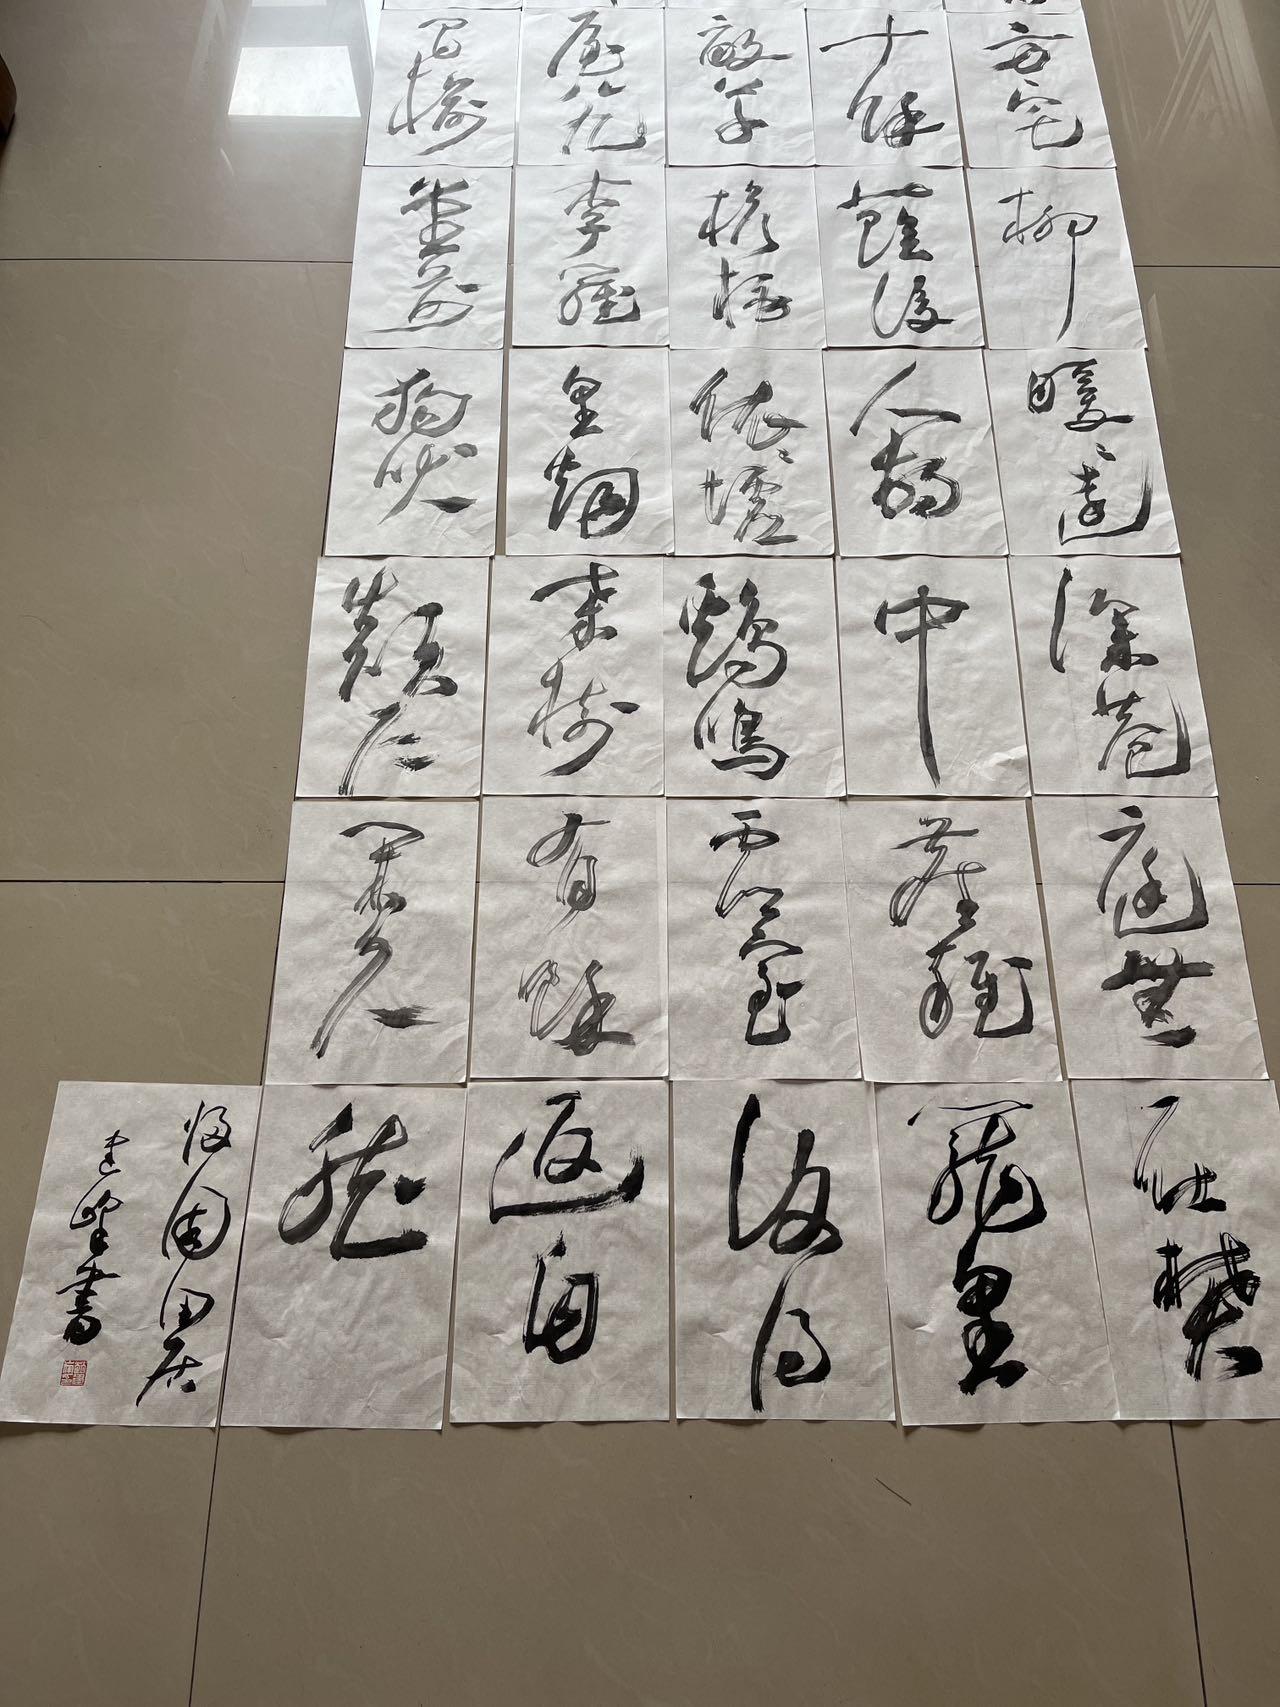 方宅十餘畝草屋八九間榆
柳蔭後檐桃李羅堂前
曖曖遠人村依依墟里烟狗吠
深巷中鷄鳴桑樹顛户
庭無塵雜虛室有餘閑久
在樊籠裏復得返自然
歸園田居
建峰書